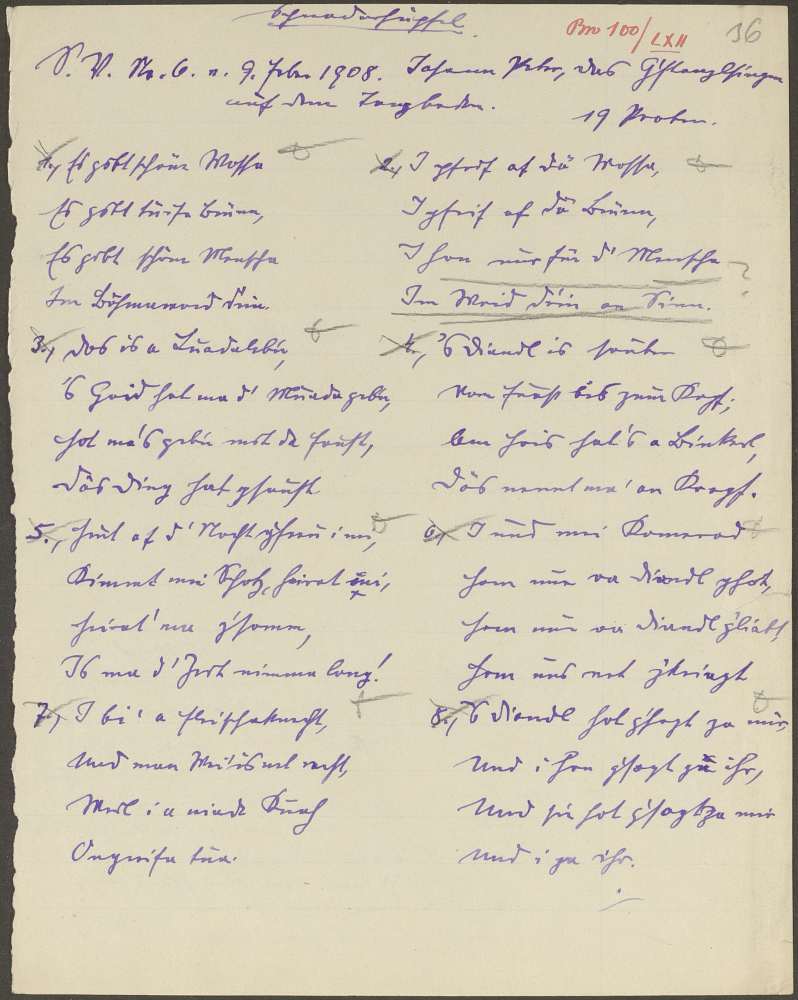 Schnaderhüpfel.
Bro 100/LXII
36
D. V. No. 6. v. 9. Feber 1908. Johann Peter, das G'stanzlsingen
auf dem Tanzboden.
19 Proben.
1., Es gibt schöne Wossa
Es gibt tiafe Brünn,
Es gibt schöne Menscha
Im Böhmawoid drin.
2., I pfeif af dö Wossa,
I pfeif af dö Brünn,
I hon nur für d' Menscha
Im Woid drin an Sinn.
?
3., Dos is a Luadaleb'n,
's Goid hot ma d' Muada geb'n,
hot ma's geb'n mit da Faust,
Dös Ding hat g'saust.
4., 's Diandl is sauba
Vom Fuaß bis zum Kopf;
Am Hois hat's a Binkerl,
Dös nennt ma' an Kropf.
5., Heut af d' Nocht g'freu i mi,
Kimmt mei Schotz, heirat mi,
Heirat' ma z'somm,
Is ma d' Zeit nimma lang!
6., I und mei Komerod
Hom nur oa Diandl g'hot,
Hom nur oa Diandl g'liabt,
Hom uns net z'kriagt
7., I bi' a Fleischaknecht,
Und man Wei' is net recht,
Weil i a niade Kuah
Ongreifa tua.
8., 's Diandl hot g'sagt za mir,
Und i hon g'sagt zu ihr,
Und sie hot g'sagt za mir
Und i za ihr.